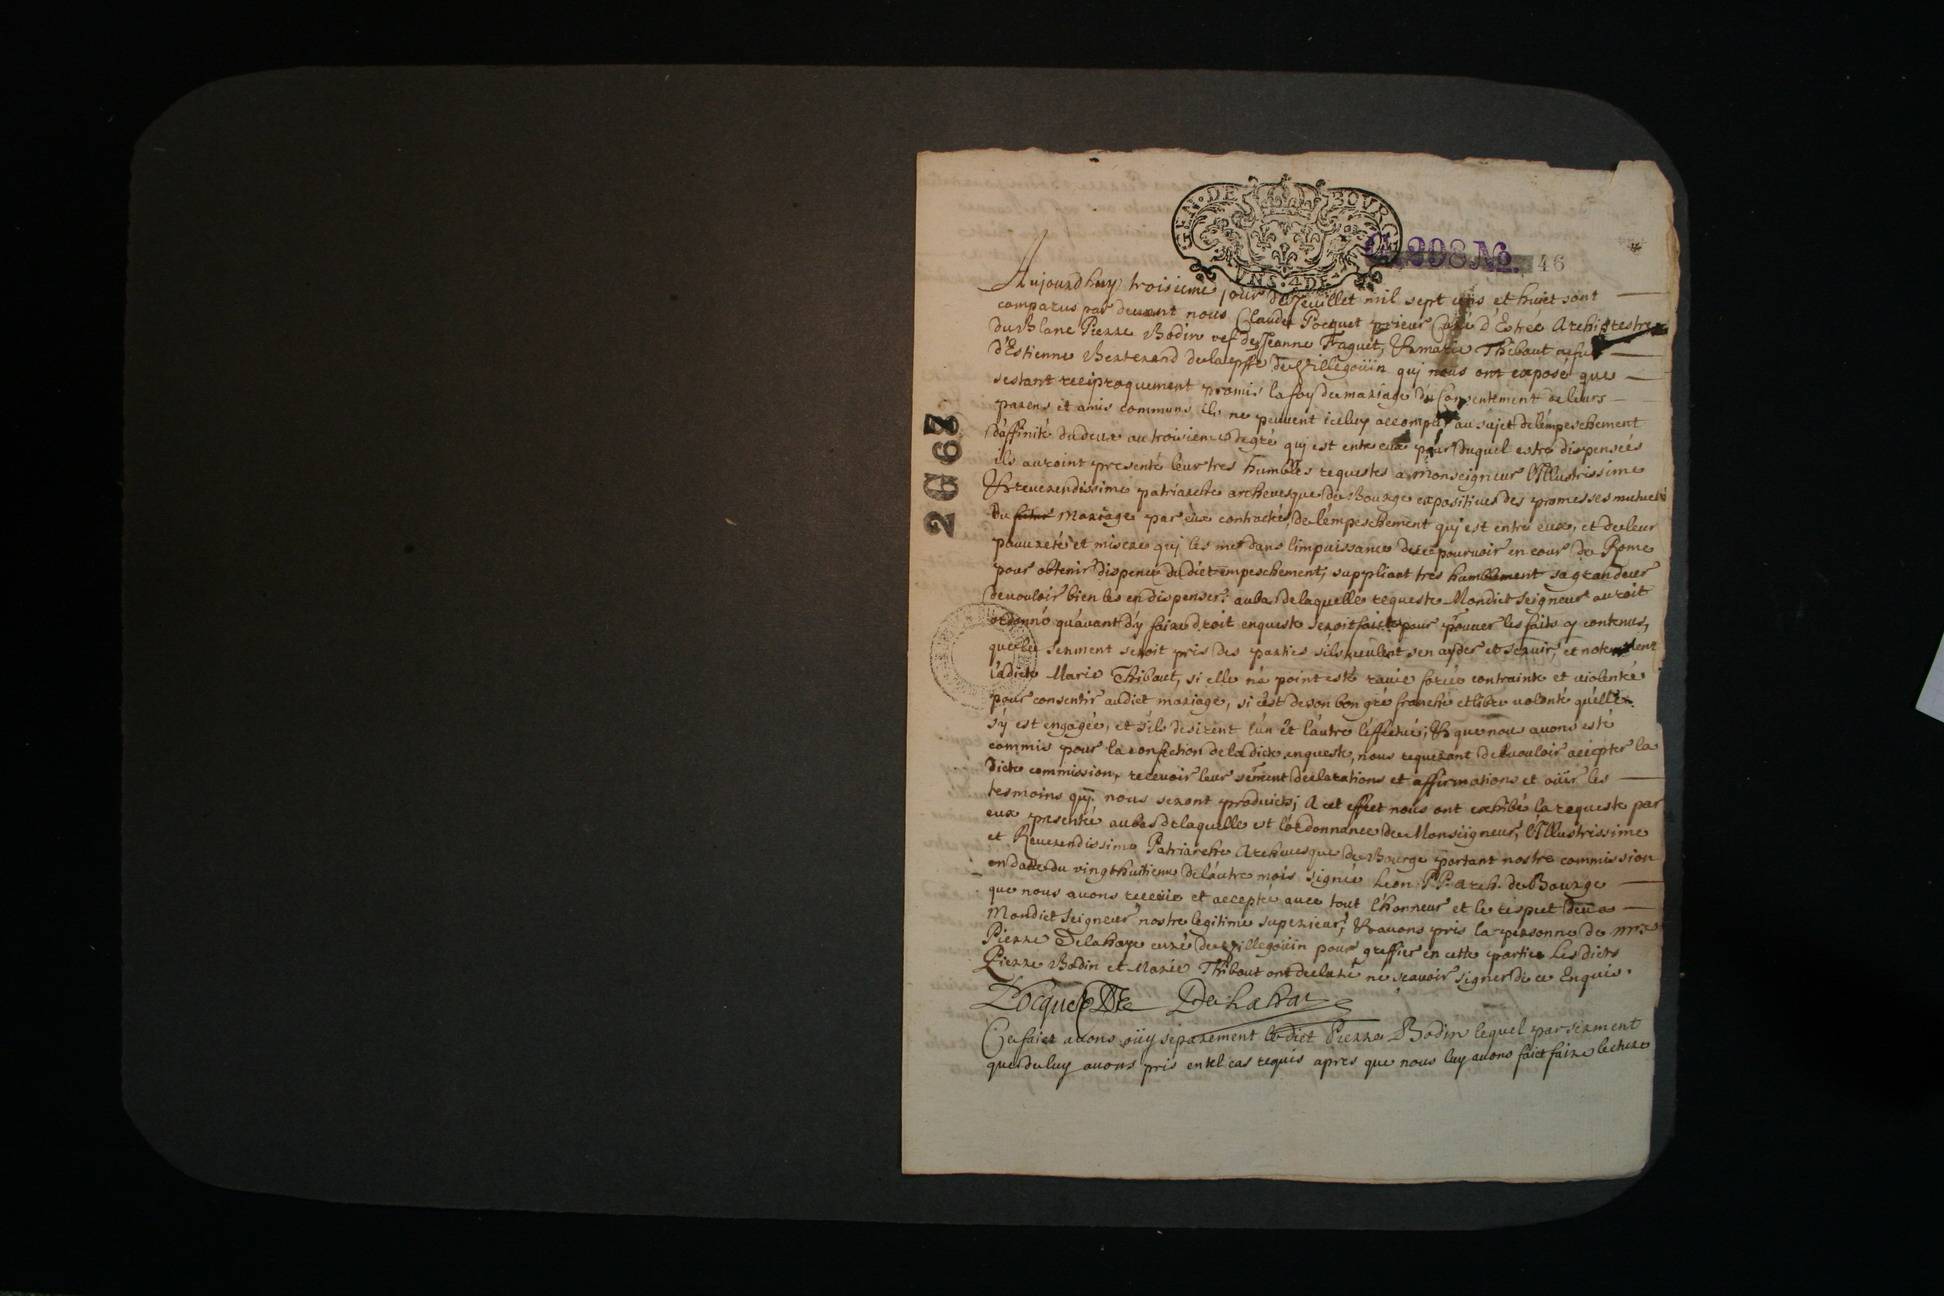 GEN. DE BOURG
UNS. 4 DE
G 298 No. 46
2G68
Aujourdhuy troisieme jour de Jeuillet mil sept cens et huict sont
comparus par devant nous Claude Pocquet prieur Curé d'Estrée Archiprestre
du Blanc Pierre Bodin vef de Jeanne Faguet, & marie Thibaut
d'Estienne Berterand de la psse de Villegoüin qui nous ont exposé que
sestant reciproquement promis la foy de mariage du Consentement de leurs
parens et amis communs ils ne peuvent iceluy accomplir au sujet de l'empeschement
d'affinité du deux au troisieme degré qui est entre eux pour duquel estre dispensés
ils auroint presenté leur tres humbles requestes a monseigneur l'Illustrissime
& reverendissime patriarche archevesque de Bourge expositives des promesses mutuel
du futur mariage par eux contractés, de l'empeschement qui est entre eux, et de leur
pauvreté et misere qui les met dans l'impuissance de se pourvoir en cour de Rome
pour obtenir dispence du dict empeschement, suppliant tres humblement sa grandeur
de vouloir bien les en dispenser; au bas de laquelle requeste Mondict seigneur auroit
ordonné qu'avant d'y faire droit enqueste seroit faicte pour prouver les faits y contenus,
que le serment seroit pris des parties s'ils veulent s'en ayder et servir, et notemment
ladicte Marie Thibaut, si elle n'a point esté ravie forcée contrainte et violenté
pour consentir audict mariage, si c'est de son bon gré franche et libre volonté qu'elle
s'y est engagée, et s'ils desirent l'un et l'autre l'effectué; & que nous avons esté
commis pour la confection de ladicte enqueste, nous requerant de vouloir accepter la
dicte commission, recevoir leur serment declarations et affirmations et oüir les
tesmoins qui nous seront produicts; A cet effect nous ont exhibé la requeste par
eux presentée au bas de laquelle est l'ordonnance de Monseigneur, l'Illustrissime
et Reverendissime Patriarche Archevesque de Bourge portant nostre commission
en datte du vingt huitieme de l'autre mois signée Leon P.P. arch. de Bourge
que nous avons receüe et accepté avec tout l'honneur et le respect deu a
Mondict Seigneur nostre legitime superieur, & avons pris la personne de mre
Pierre Delahaye curé de Villegoüin pour greffier en cette partie Les dicts
Pierre Bodin et Marie Thibaut ont declaré ne sçavoir signer de ce Enquis.
Pocquet Delahaye
Ce faict avons oüy separement le dict Pierre Bodin lequel par serment
que de luy avons pris en tel cas requis apres que nous luy avons faict faire lecture